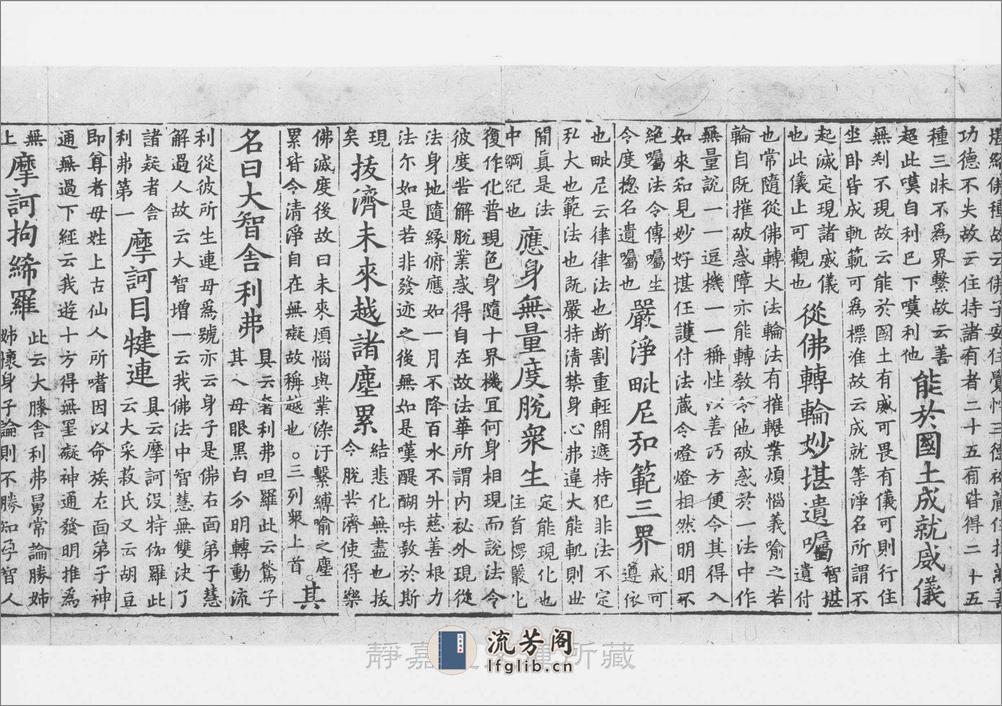 功德不失故云住持諸有者二十五有皆得二十五
種三昧不爲界繫故云善
超此嘆自利已下嘆利他 能於國土成就威儀
無刹不現故云能於國土有威可畏有儀可則行住
坐卧皆成軌範可爲標准故云成就等淨名所謂不
起滅定現諸威儀
也此儀止可觀也 從佛轉輪妙堪遺囑 智堪遺付
也常隨從佛轉大法輪法有摧輾業煩惱義喻之若
輪自既摧破惑障亦能轉教令他破惑於一法中作
無量說一一逗機一一稱性以善巧方便令其得入
如來知見妙好堪任護付法藏令燈燈相然明明不
絶囑法令傳囑生
令度揔名遺囑也 嚴淨毗尼和範三界 戒可遵依
也毗尼云律律法也断割重輕開遮持犯非法不定
弘大也範法也既嚴持清禁身心弗違大能軌則世
間真是法
中綱紀也 應身無量度脫衆生 定能現化也
住首楞嚴化
復作化普現色身隨十界機宜何身相現而說法令
彼度皆解脫業惑得自在故法華所謂内祕外現從
法身地隨緣俯應如一月不降百水不升慈善根力
法尓如是若非發迹之後無如是嘆醍醐味教於斯
現矣 拔濟未來越諸塵累 結悲化無盡也拔
令脫皆濟使得樂
佛滅度後故曰未來煩惱與業染汙繫縛喻之塵
累皆令清淨自在無礙故稱越也○三列衆上首 其
名曰大智舍利弗 具云奢利弗呾羅此云鶖子
其母眼黑白分明轉動流
利從彼所生連母爲號亦云身子是佛右面弟子慧
解過人故云大智增一云我佛法中智慧無雙決了
諸疑者舍
利弗第一 摩訶目犍連 具云摩訶没特伽羅此
云大采菽氏又云胡豆
即尊者母姓上古仙人所嗜因以命族左面弟子神
通無過下經云我遊十方得無罣礙神通發明推爲
無上 摩訶拘絺羅 此云大膝舍利弗舅常論勝姊
姊懷身子論則不勝知孕智人